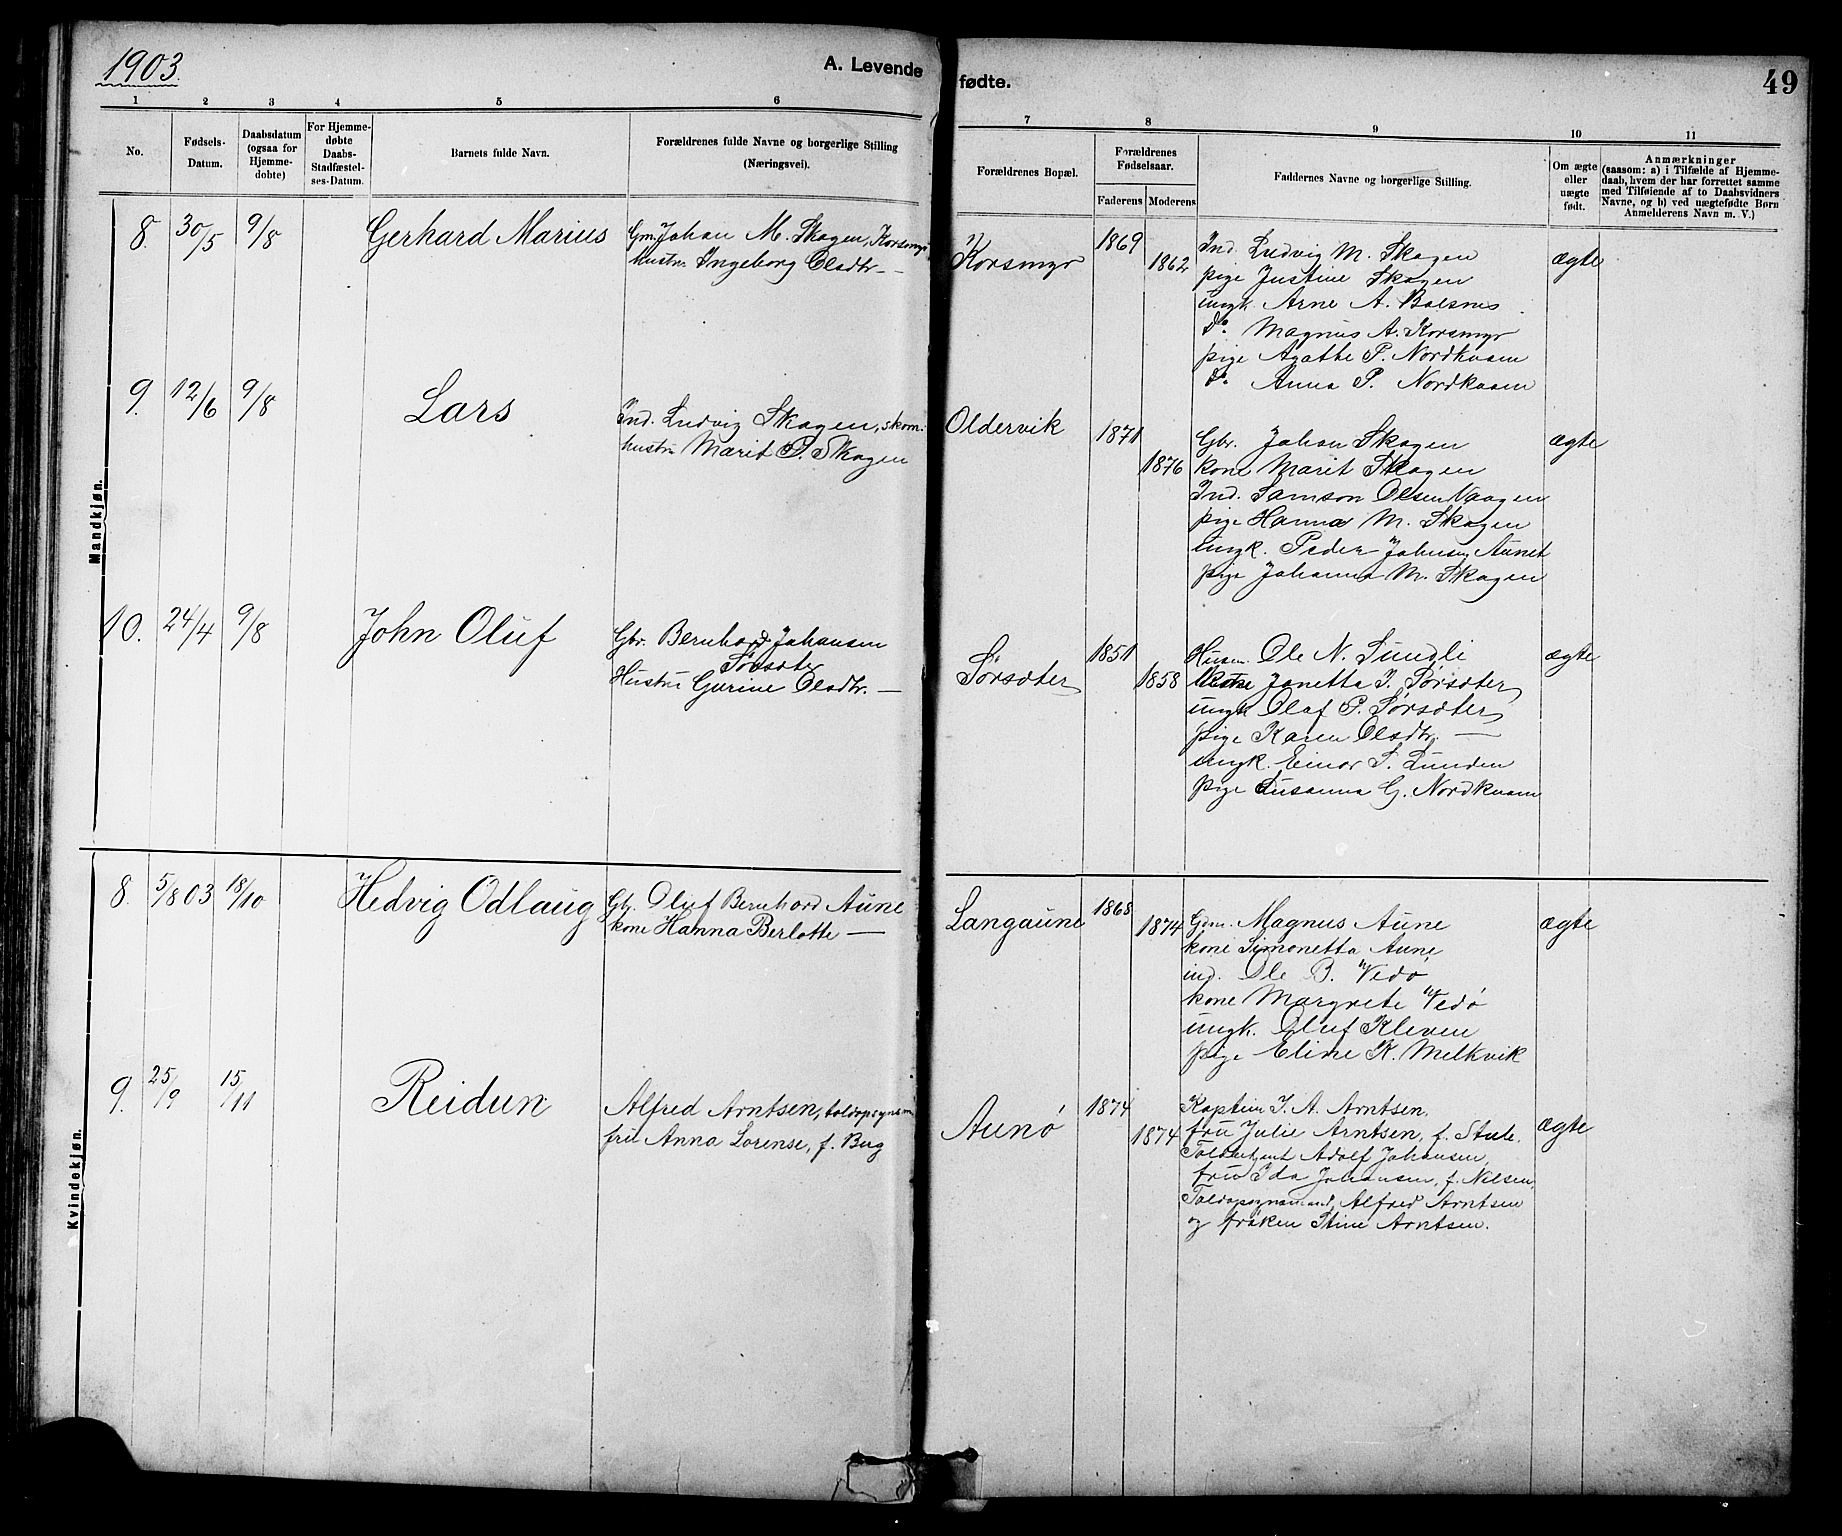 1903.
A. Levende fødte.
49
1 2 3 4 5 6 7 8 9 10 11
No.
Fødsels-
Datum.
Daabsdatum
(ogsaa for
Hjemme-
døbte)
For Hjemme-
døbte
Daabs-
Stadfæstel-
ses-Datum.
Barnets fulde Navn.
Forældrenes fulde Navne og borgerlige Stilling
(Næringsvei).
Forældrenes Bopæl.
Forældrenes
Fødselsaar.
Faderens Moderens
Faddernes Navne og borgerlige Stilling.
Om ægte
eller
uægte
født.
Anmærkninger
(saasom: a) i Tilfælde af Hjemme-
daab, hvem der har forrettet samme
med Tilføiende af to Daabsvidners
Navne, og b) ved uægtefødte Børn
Anmelderens Navn m. V.)
Mandkjøn.
8. 30/5 9/8 Gerhard Marius
Gm. Johan M. Skagen, Korsmyr
hustru Ingeborg Olsdtr. —
Korsmyr
1869
1862
Ind. Ludvig M. Skagen
pige Justine Skagen
ungk. Arne A. Balsnes
Do. Magnus A. Korsmyr
pige Agathe P. Nordkvam
Do. Anna P. Nordkvam
ægte
9. 12/6 9/8 Lars
Ind. Ludvig Skagen, skom.
hustru Marit P. Skagen
Oldervik
1871
1876
Gbr. Johan Skagen
kone Marit Skagen
Ind. Samson Olsen Vaagen
pige Hanna M. Skagen
ungk. Peder Johnsen Aunet
pige Johanna M. Skagen
ægte
10. 24/4 9/8 John Oluf
Gbr. Bernhard Johansen
Sørsæter
Hustru Gurine Olsdtr. —
Sørsæter
1851
1858
Husm. Ole N. Sundli
kone Janetta J. Sørsæter
ungk Olaf P. Sørsæter
pige Karen Olsdtr. —
ungk. Einar S. Lunden
pige Susanna G. Nordkvam
ægte
Kvindekjøn.
8. 5/8 03 18/10 Hedvig Odlaug
Gbr. Oluf Bernhard Aune
kone Hanna Berlotte —
Langaune
1868
1874
Gbm. Magnus Aune
kone Simonetta Aune
ind. Ole B. Vedø
kone Margrete Vedø
ungk. Oluf Kleven
pige Eline K. Melkvik
ægte
9. 25/9 15/11 Reidun
Alfred Arntsen, toldopsynsm
fru Anna Lorense, f. Bug
Aunø
1874
1874
Kaptein J. A. Arntsen,
fru Julie Arntsen, f. Stub.
Toldbetjent Adolf Johansen,
fru Ida Johansen, f. Nilsen,
Toldopsynsmand Alfred Arntsen
og frøken Stine Arntsen.
ægte